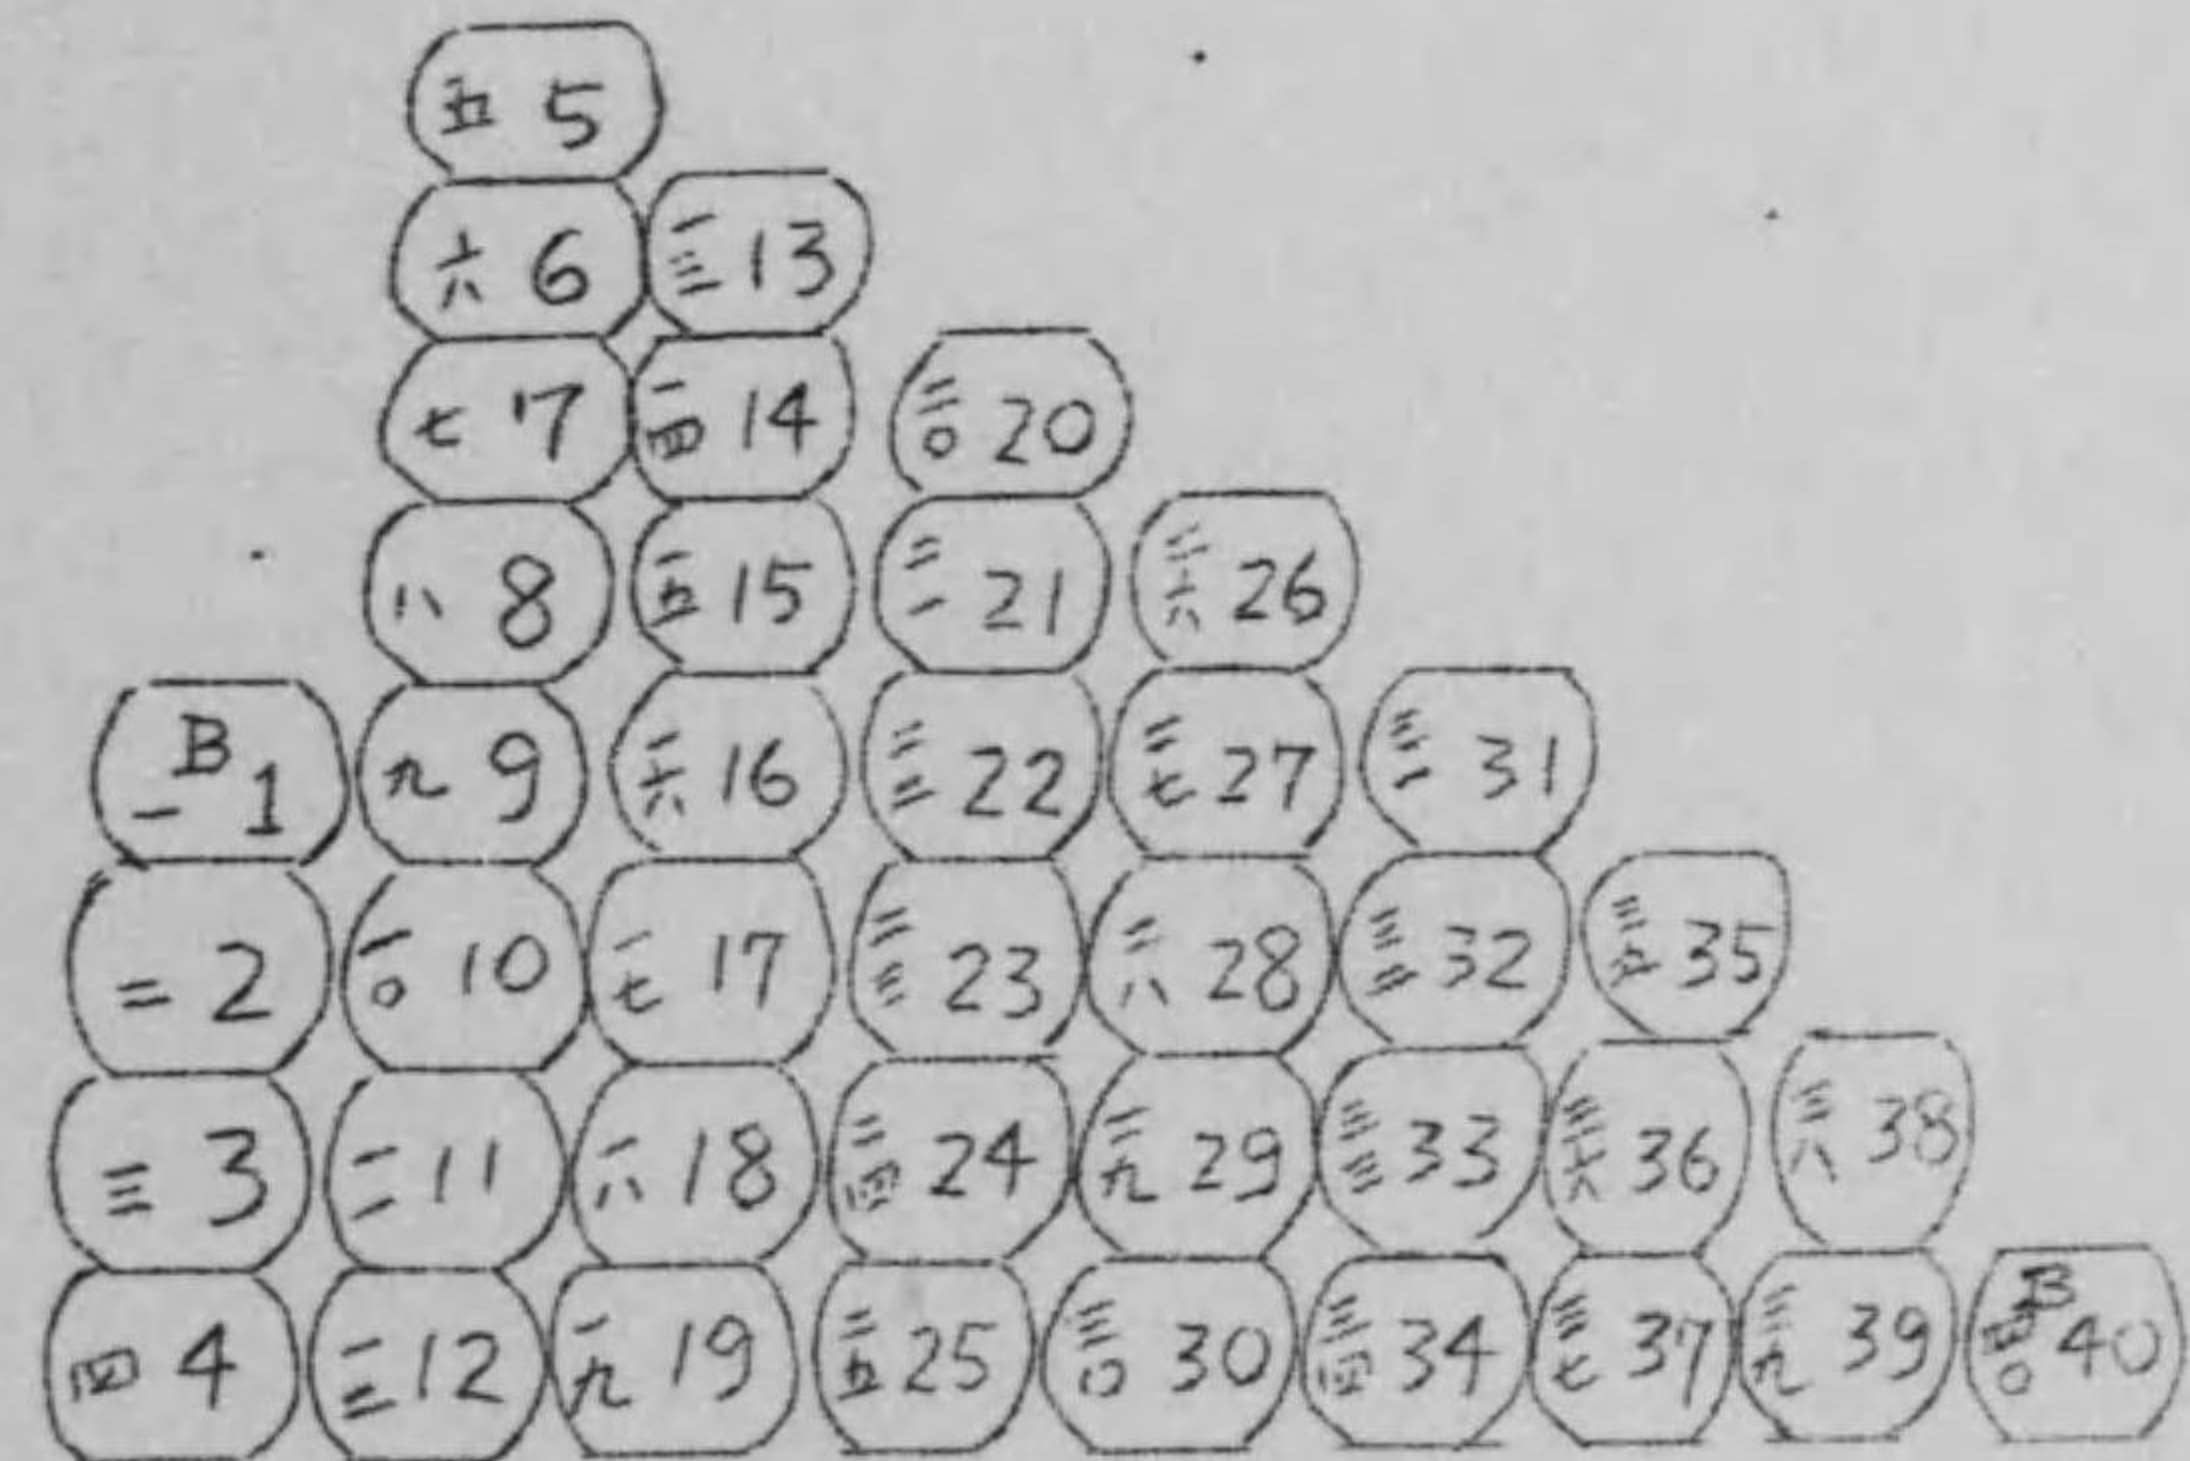 五 5
六 6 一三 13
七 7 一四 14 二〇 20
八 8 一五 15 二一 21 二六 26
B 一 1 九 9 一六 16 二二 22 二七 27 三一 31
二 2 一〇 10 一七 17 二三 23 二八 28 三二 32 三五 35
三 3 一一 11 一八 18 二四 24 二九 29 三三 33 三六 36 三八 38
四 4 一二 12 一九 19 二五 25 三〇 30 三四 34 三七 37 三九 39 B 四〇 40